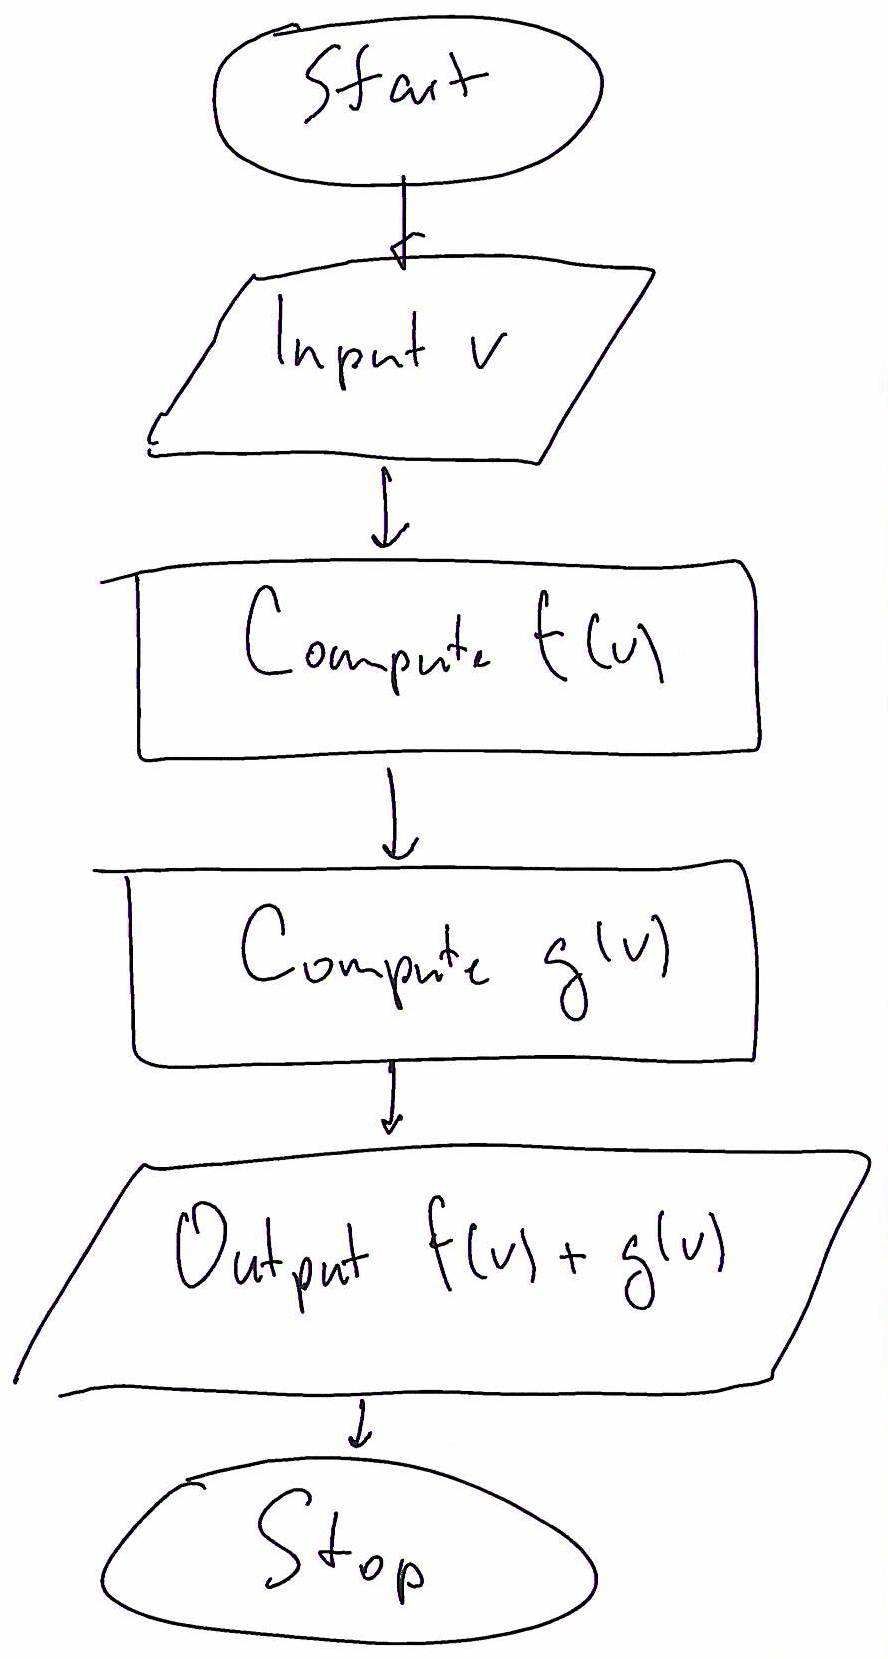 Start
Input v
Compute f(v)
Compute g(v)
Output f(v) + g(v)
Stop